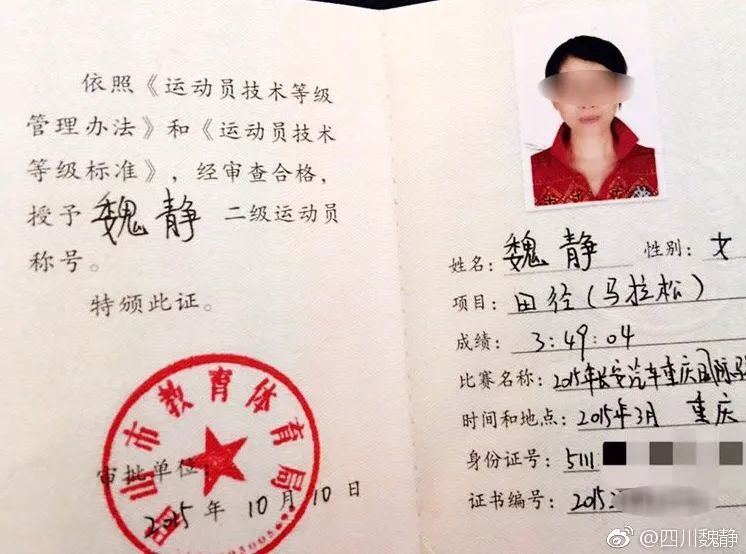 依照《运动员技术等级
管理办法》和《运动员技术
等级标准》，经审查合格，
授予 魏静 二级运动员
称号。
特颁此证。
山市教育体育局
审批单位：
2015 年 10 月 10 日
姓名： 魏静 性别： 女
项目： 田径（马拉松）
成绩： 3:49:04
比赛名称： 2015年长安汽车重庆国际马
时间和地点： 2015年3月 重庆
身份证号： 5111
证书编号： 2015
@四川魏静